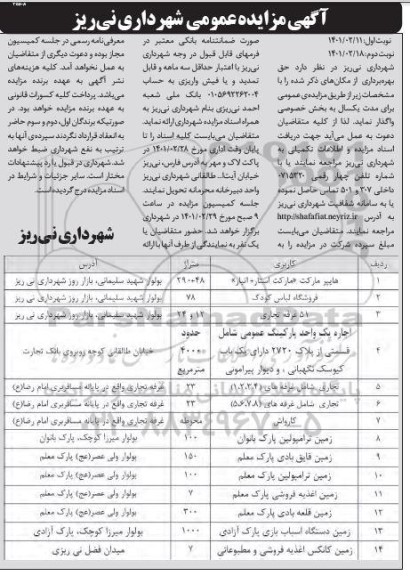 آگهی مزایده عمومی شهرداری نی ریز
نوبت اول: ۱۴۰۱/۰۲/۱۱
نوبت دوم: ۱۴۰۱/۰۲/۱۸
شهرداری نی‌ریز در نظر دارد حق
بهره‌برداری از مکان‌های ذکر شده را با
مشخصات زیر از طریق مزایده‌ی عمومی
برای مدت یکسال به بخش خصوصی
واگذار نماید. لذا از کلیه متقاضیان
دعوت به عمل می‌آید جهت دریافت
اسناد مزایده و اطلاعات تکمیلی به
شهرداری نی‌ریز مراجعه نمایند یا با
شماره تلفن چهار رقمی
داخلی ۳۰۷ و ۵۰۱ تماس حاصل نموده
یا به سامانه شفافیت شهرداری نی‌ریز
به آدرس http://shafafiat.neyriz.ir
مراجعه نمایند. متقاضیان می‌بایست
مبلغ سپرده شرکت در مزایده را به
صورت ضمانتنامه بانکی معتبر در
فرمهای قابل قبول در وجه شهرداری
نی‌ریز با اعتبار حداقل سه ماهه و قابل
تمدید و یا فیش واریزی به حساب
۰۱۰۵۶۹۲۲۶۲۰۰۴ بانک ملی شعبه
احمد نی‌ریزی بنام شهرداری نی‌ریز به
همراه اسناد مزایده شهرداری ارائه نماید.
متقاضیان می‌بایست کلیه اسناد را تا
پایان وقت اداری مورخ ۱۴۰۱/۰۲/۲۸ در
پاکت لاک و مهر به آدرس فارس، نی‌ریز
خیابان آیت‌ا... طالقانی شهرداری نی‌ریز
واحد دبیرخانه محرمانه تحویل نمایند.
جلسه کمیسیون مزایده در ساعت
۹ صبح مورخ ۱۴۰۱/۰۲/۲۹ در شهرداری
برگزار خواهد شد. حضور متقاضیان یا
یک نفر به نمایندگی از طرف آنها با ارائه
معرفی‌نامه رسمی در جلسه کمیسیون
مجاز بوده و دعوت دیگری از متقاضیان
به عمل نخواهد آمد. کلیه هزینه‌های
نشر آگهی به عهده برنده مزایده
می‌باشد. پرداخت کلیه کسورات قانونی
به عهده برنده مزایده خواهد بود. در
صورتیکه برندگان اول، دوم و سوم حاضر
به انعقاد قرارداد نگردند سپرده‌ی آنها به
ترتیب به نفع شهرداری ضبط خواهد
شد. شهرداری در قبول یا رد پیشنهادات
مختار است. سایر جزئیات و شرایط در
اسناد مزایده درج گردیده است.
شهرداری نی‌ریز
ردیف کاربری متراژ آدرس
۱ هایپر مارکت «مارکت استار+ انبار» ۲۹۰+۴۸ بولوار شهید سلیمانی، بازار روز شهرداری نی ریز
۲ فروشگاه لباس کودک ۷۸ بولوار شهید سلیمانی، بازار روز شهرداری نی ریز
۳ ۵۱ غرفه تجاری ۱۲ و ۲۴ بولوار شهید سلیمانی، بازار روز شهرداری نی ریز
۴ اجاره یک واحد پارکینگ عمومی شامل قسمتی از پلاک ۲۷۲۰ دارای یک باب کیوسک نگهبانی، و دیوار پیرامونی حدود ۴۰۰۰ مترمربع خیابان طالقانی کوچه روبروی بانک تجارت
۵ تجاری شامل غرفه های (۱،۲،۳،۴) ۲۳ غرفه تجاری واقع در پایانه مسافربری امام رضا(ع)
۶ تجاری شامل غرفه های (۵،۶،۷،۸) ۲۳ غرفه تجاری واقع در پایانه مسافربری امام رضا(ع)
۷ کارواش محوطه غرفه تجاری واقع در پایانه مسافربری امام رضا(ع)
۸ زمین ترامپولین پارک بانوان ۱۰۰ بولوار میرزا کوچک، پارک بانوان
۹ زمین قایق بادی پارک معلم ۱۵۰ بولوار ولی عصر(عج) پارک معلم
۱۰ زمین ترامپولین پارک معلم ۱۰۰ بولوار ولی عصر(عج) پارک معلم
۱۱ زمین اغذیه فروشی پارک معلم ۷ بولوار ولی عصر(عج) پارک معلم
۱۲ زمین قلعه بادی پارک معلم ۳۰۰ بولوار ولی عصر(عج) پارک معلم
۱۳ زمین دستگاه اسباب بازی پارک آزادی ۱۰۰۰ بولوار میرزا کوچک، پارک آزادی
۱۴ زمین کانکس اغذیه فروشی و مطبوعاتی ۷ میدان فضل نی ریزی